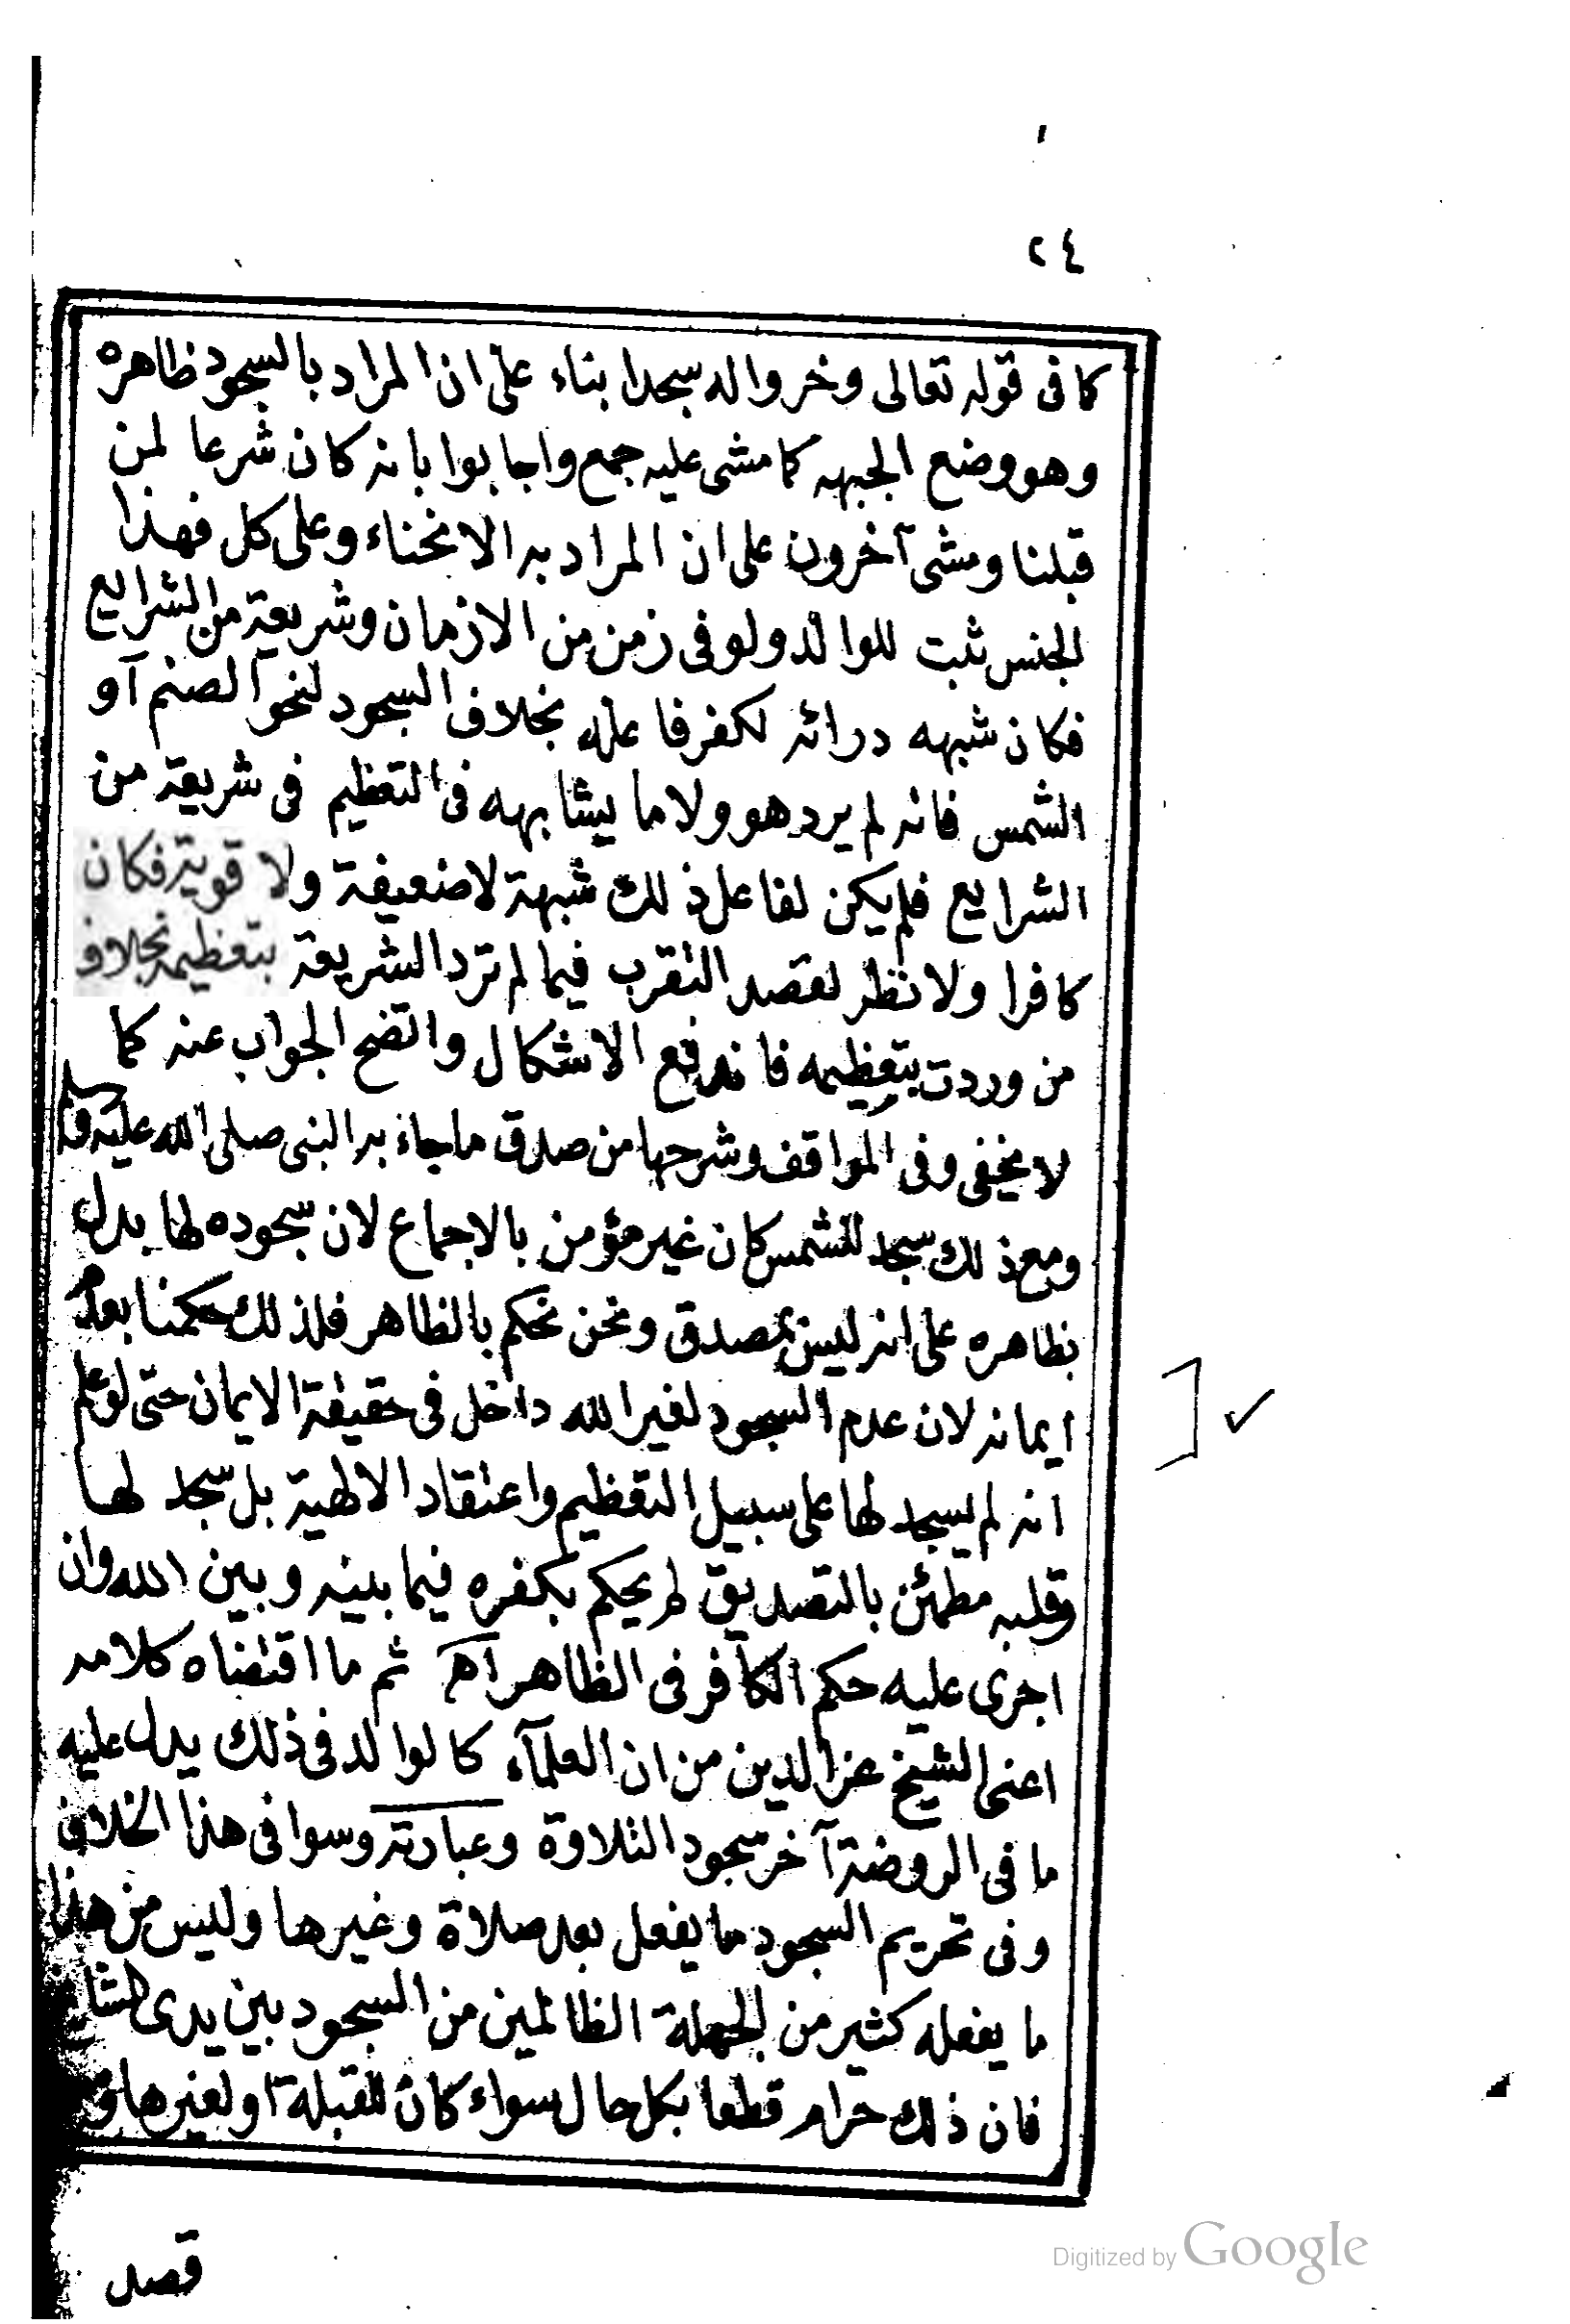 ٢٤
كما فى قوله تعالى وخروا له سجدا بناء على ان المراد بالسجود ظاهره
وهو وضع الجبهه كما مشى عليه جمع واجابوا بانه كان شرعا لمن
قبلنا ومشى آخرون على ان المراد به الانحناء وعلى كل فهذا
الجنس ثبت للوالد ولو فى زمن من الازمان وشريعة من الشرايع
فكان شبهه درائه لكفر فاعله بخلاف السجود لنحو الصنم آو
الشمس فانه لم يرد هو ولا ما يشابهه فى التعظيم فى شريعة من
الشرايع فلم يكن لفاعل ذلك شبهة لا ضعيفة ولا قوية فكان
كافرا ولا نظر لقصد التقرب فيما لم ترد الشريعة بتعظيمه بخلاف
من وردت بتعظيمه فاندفع الاشكال واتضح الجواب عنه كما
لا يخفى وفى المواقف وشرحها من صدق ما جاء به النبى صلى الله عليه وسلم
ومع ذلك سجد للشمس كان غير مؤمن بالاجماع لان سجوده لها يدل
بظاهره على انه ليس بمصدق ونحن نحكم بالظاهر فلذلك حكمنا بعدم
ايمانه لان عدم السجود لغير الله داخل فى حقيقة الايمان حتى لو علم
انه لم يسجد لها على سبيل التعظيم واعتقاد الالهية بل سجد لها
وقلبه مطمئن بالتصديق لم يحكم بكفره فيما بينه وبين الله وان
اجرى عليه حكم الكافر فى الظاهر آه ثم ما اقتضاه كلامه
اعنى الشيخ عز الدين من ان العلمآء كالوالد فى ذلك يدل عليه
ما فى الروضة آخر سجود التلاوة وعبارته وسوا فى هذا الخلاف
وفى تحريم السجود ما يفعل بعد صلاة وغيرها وليس من هذا
ما يفعله كثير من الجهلة الظالمين من السجود بين يدى المشايخ
فان ذلك حرام قطعا بكل حال سواء كان للقبلة او لغيرها
قصد
Digitized by Google